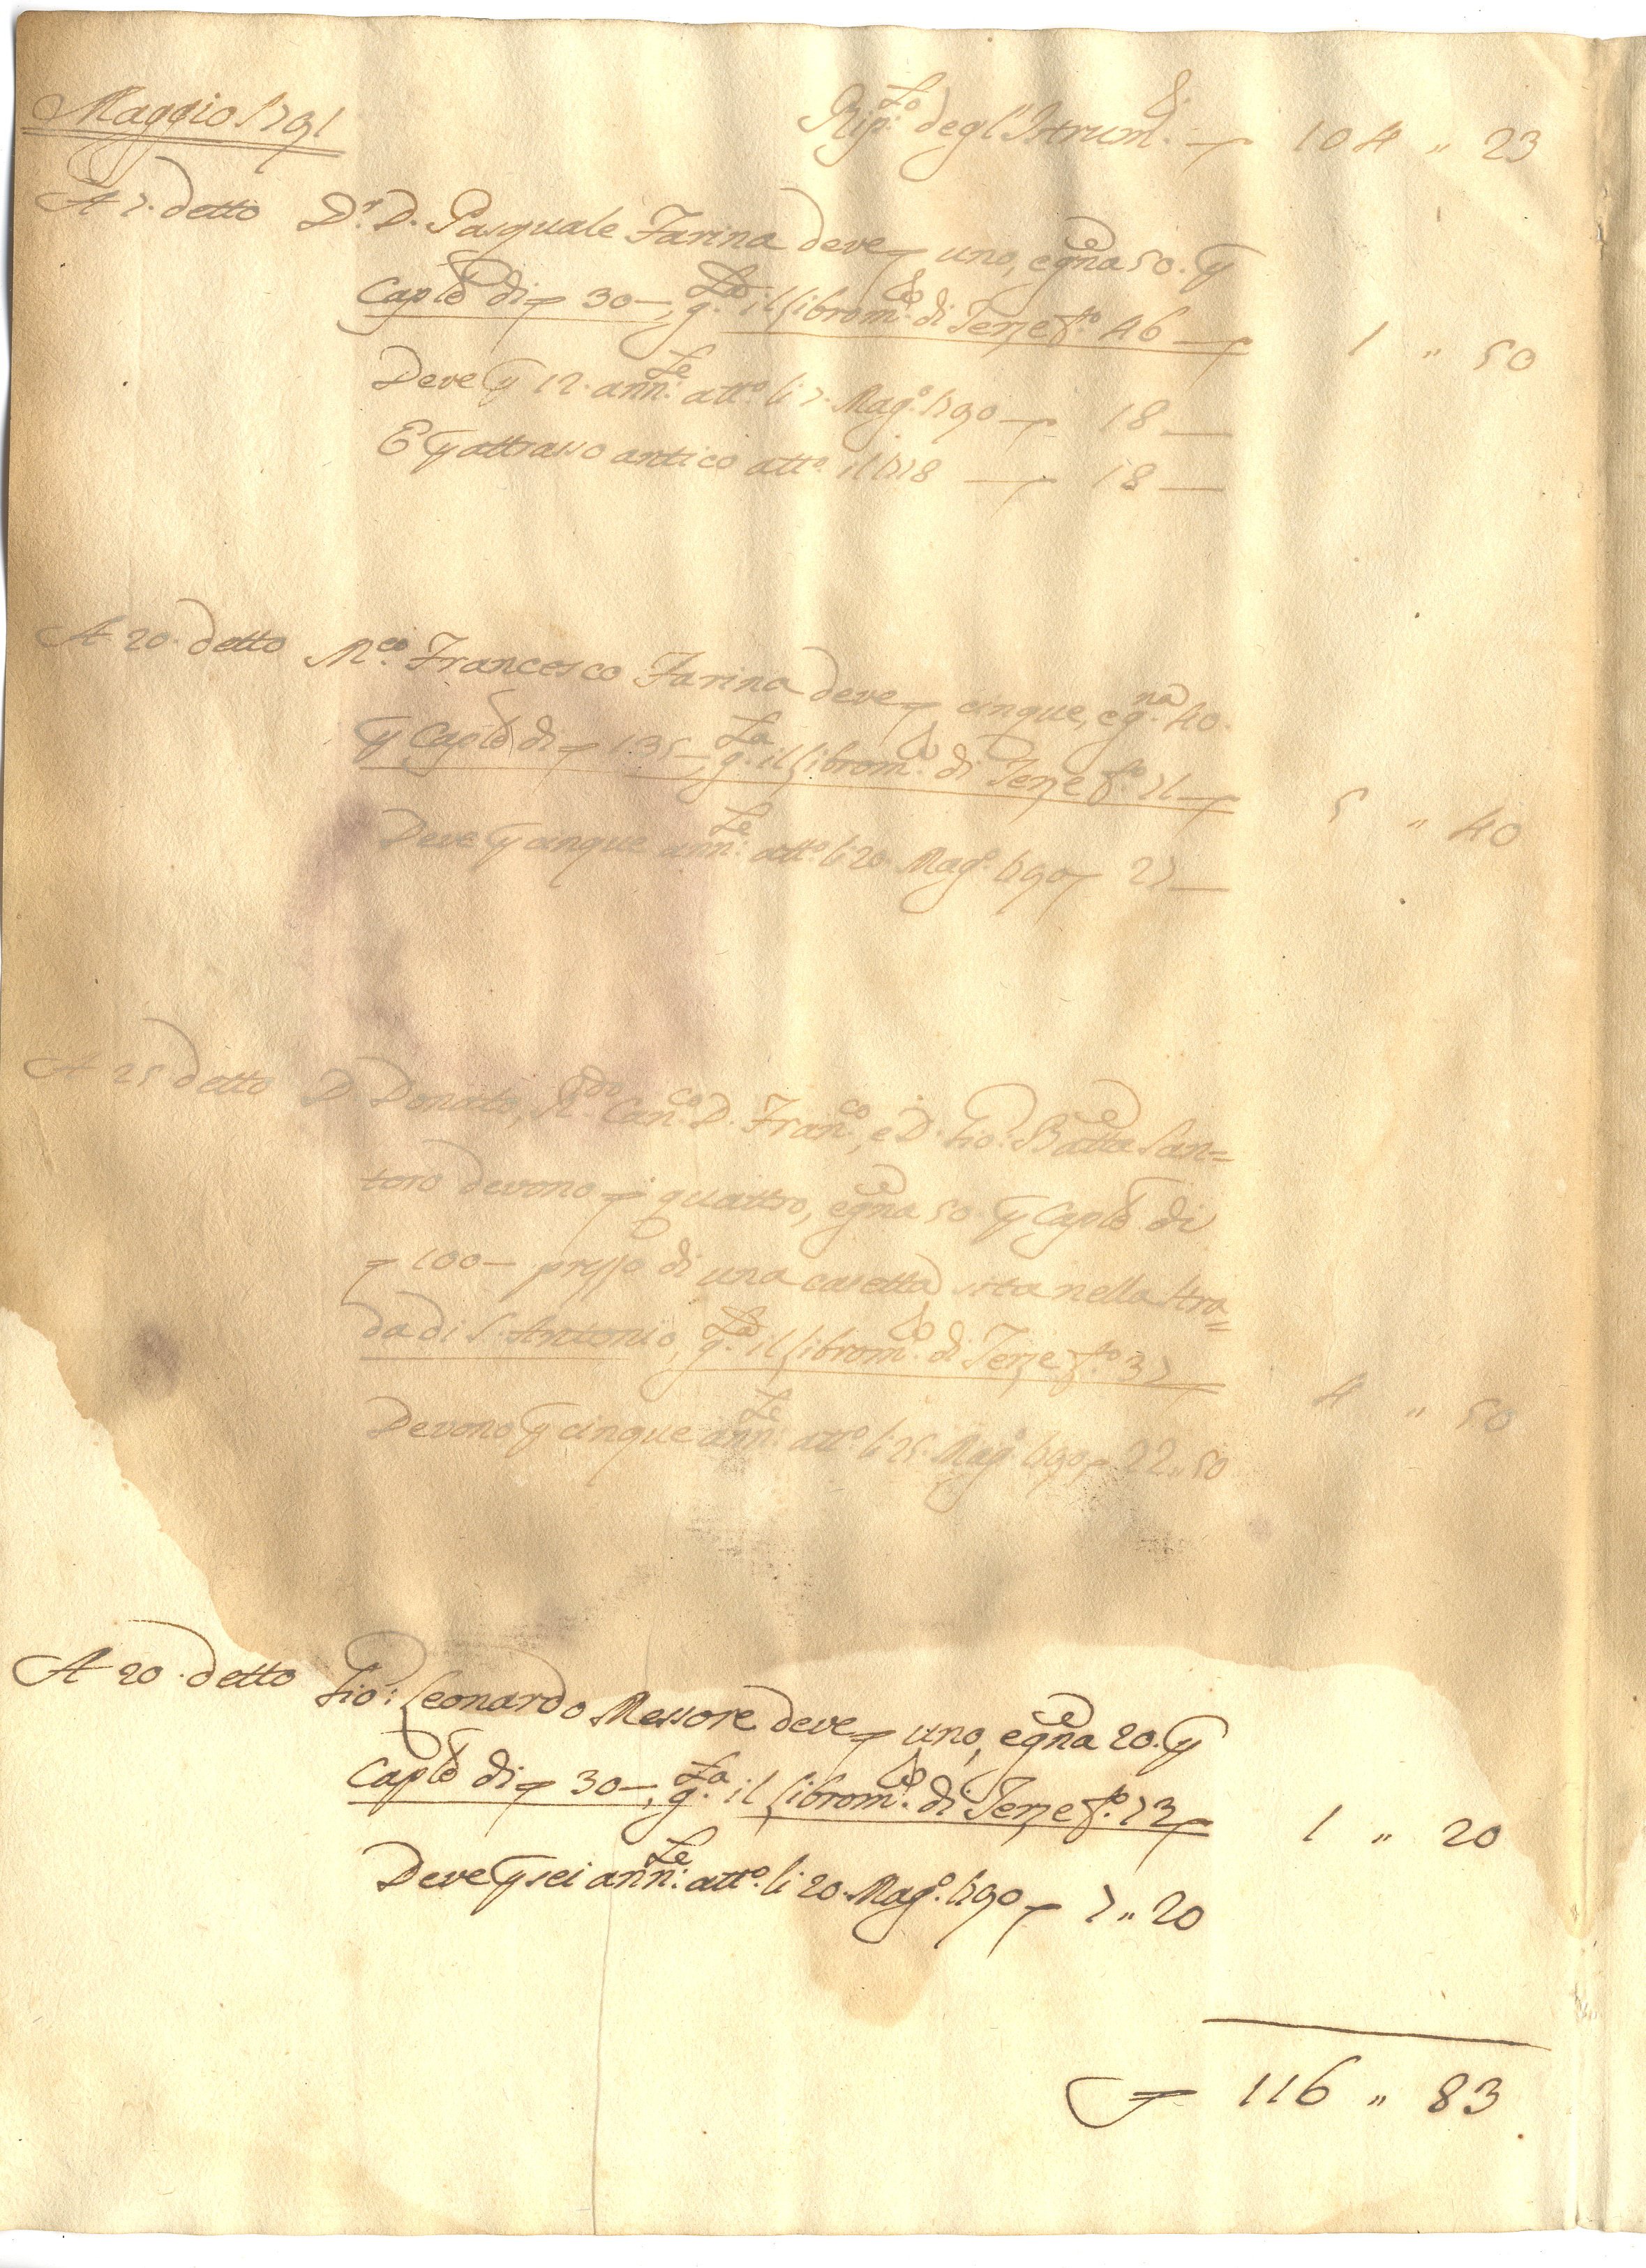 Maggio 1791
Rip.to degl'Istrum. — 104 „ 23
A 7. detto D.r D. Pasquale Farina deve uno, e gna 50. p
Caple di 30—, g.ta il librom.o di Terze f.o 46 — 1 „ 50
Deve p 12. ann.te att.o li 7. Mag.o 1790 — 18 —
E p attrasso antico att.o il 1718 — 18 —
A 20. detto M.co Francesco Farina deve cinque, e g.na 40.
p Caple di 135—, g.ta il librom.o di Terze f.o 71 — 5 „ 40
Deve p cinque ann.te att.o li 20. Mag.o 1790 27 —
A 25 detto D. Donato, R.do Can.co D. Fran.co, e D. Gio: Batta San=
toro devono quattro, e gna 50. p Caple di
100— prezzo di una casetta sita nella stra=
da di S. Antonio, g.ta il librom.o di Terze f.o 37 4 „ 50
Devono p cinque ann.te att.o li 25. Mag.o 1790 22 „ 50
A 20. detto Gio: Leonardo Messore deve uno, e gna 20. p
Caple di 30—, g.ta il librom.o di Terze f.o 73 1 „ 20
Deve p sei ann.te att.o li 20. Mag.o 1790 7 „ 20
116 „ 83